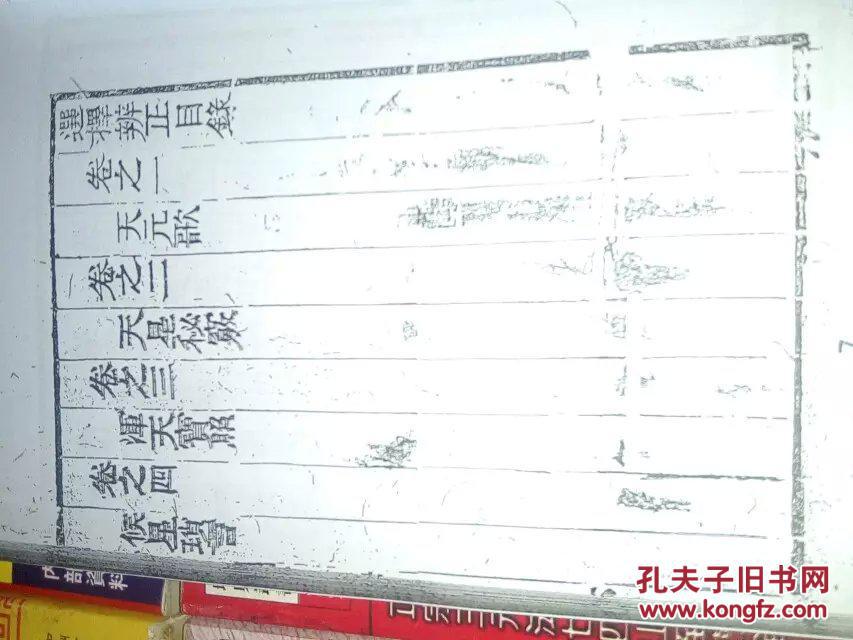 選擇辨正目錄
卷之一
天元歌
卷之二
天星秘竅
卷之三
渾天寶照
卷之四
候星
内部資料
孔夫子旧书网
www.kongfz.com